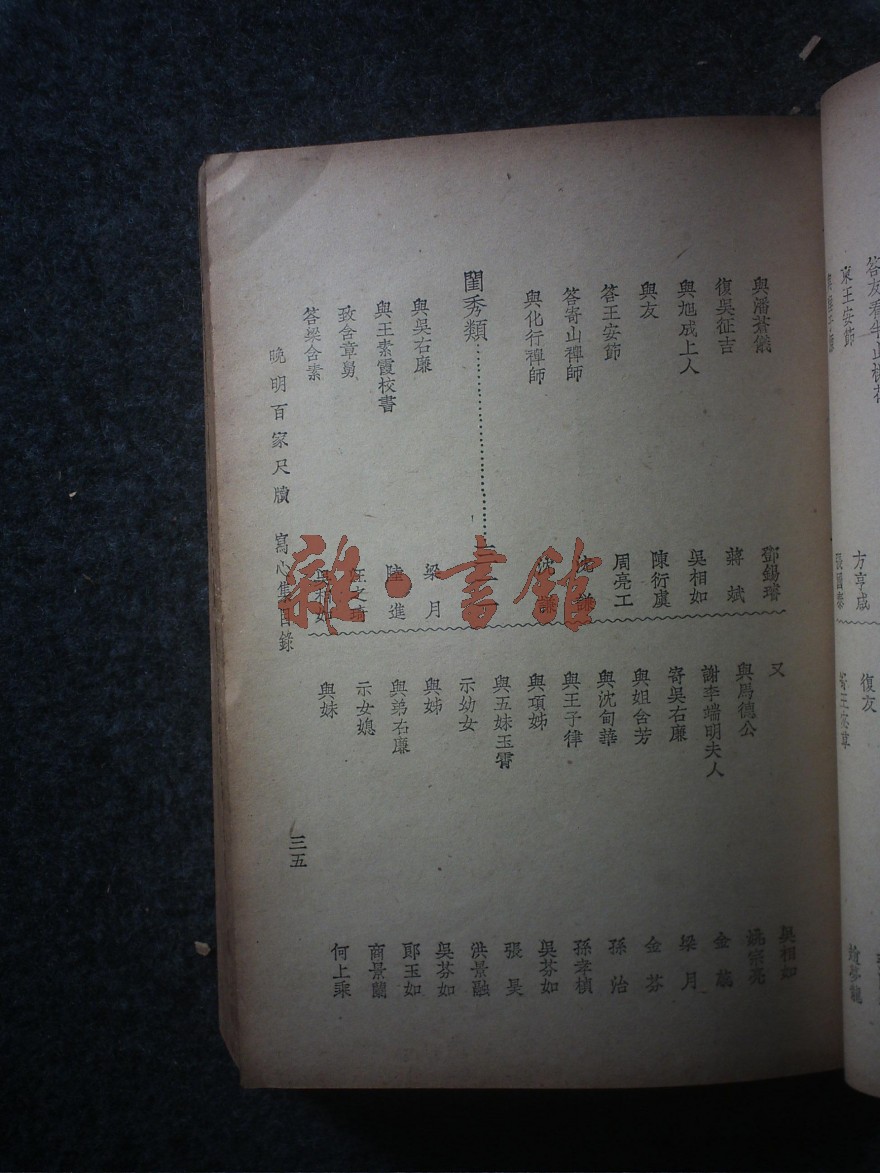 與潘蒼儀
鄧錫璿
復吳征吉
蔣斌
與旭成上人
吳相如
與友
陳衍虞
答王安節
周亮工
答寄山禪師
沈謙
與化行禪師
沈謙
閨秀類
與吳右廉
梁月
與王素霞校書
陸進
致含章舅
汪之琦
答梁含素
吳相如
又
吳相如
與馬德公
姚宗亮
謝李端明夫人
金
寄吳右廉
梁月
與姐含芳
金芬
與沈甸華
孫治
與王子律
孫孝楨
與項姊
吳芬如
與五妹玉霄
張昊
示幼女
洪景融
與姊
吳芬如
與弟右廉
鄖玉如
示女媳
商景蘭
與妹
何上乘
晚明百家尺牘 寫心集目錄
三五
柬王安節
方亨咸
復友
雜·書館